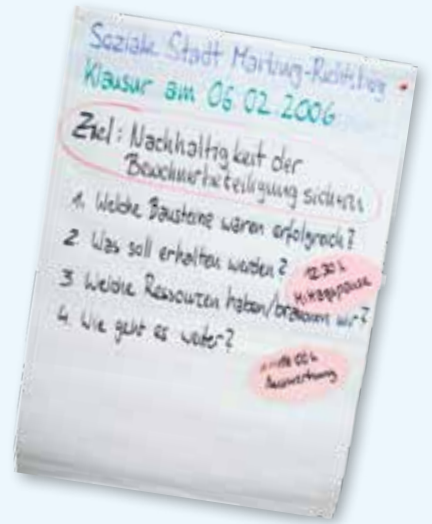 Soziale Stadt Marburg-Richtsberg
Klausur am 06.02.2006
Ziel: Nachhaltigkeit der
Bewohnerbeteiligung sichern
1. Welche Bausteine waren erfolgreich?
2. Was soll erhalten werden?
12.30 h
Mittagspause
3. Welche Ressourcen haben/brauchen wir?
4. Wie geht es weiter?
Auswertung